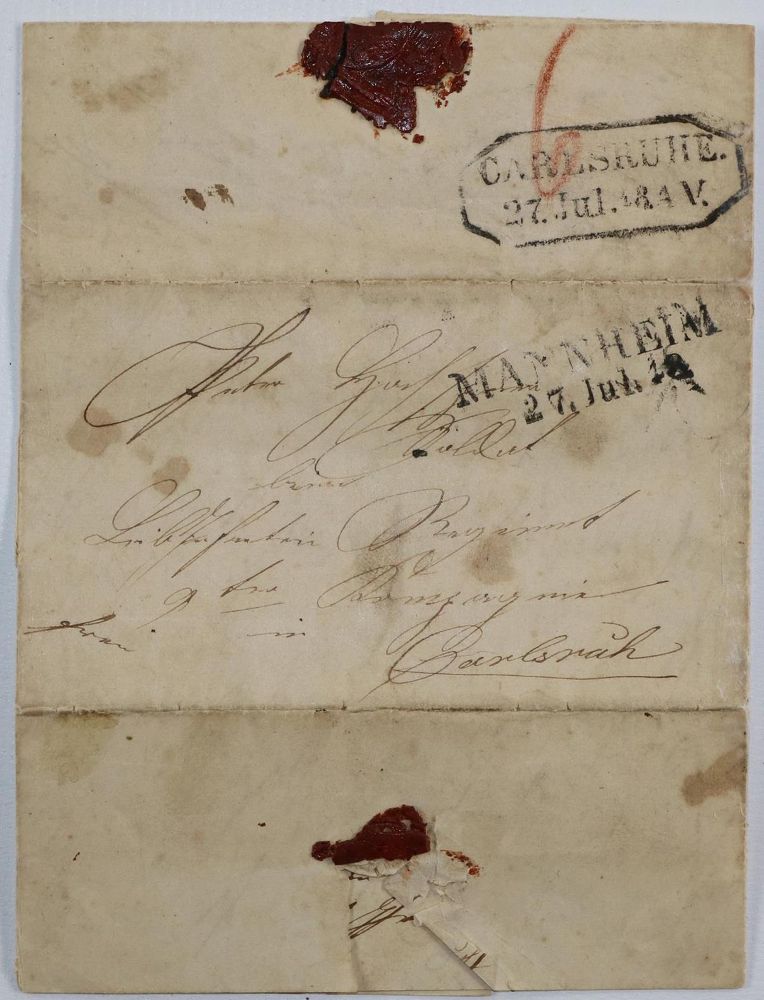 6
CARLSRUHE.
27. Jul. 184 V.
MANNHEIM
27. Jul. 18
Peter
Soldat
beim
Leib Infanterie Regiment
9 ten Kompagnie
frei in Carlsruh